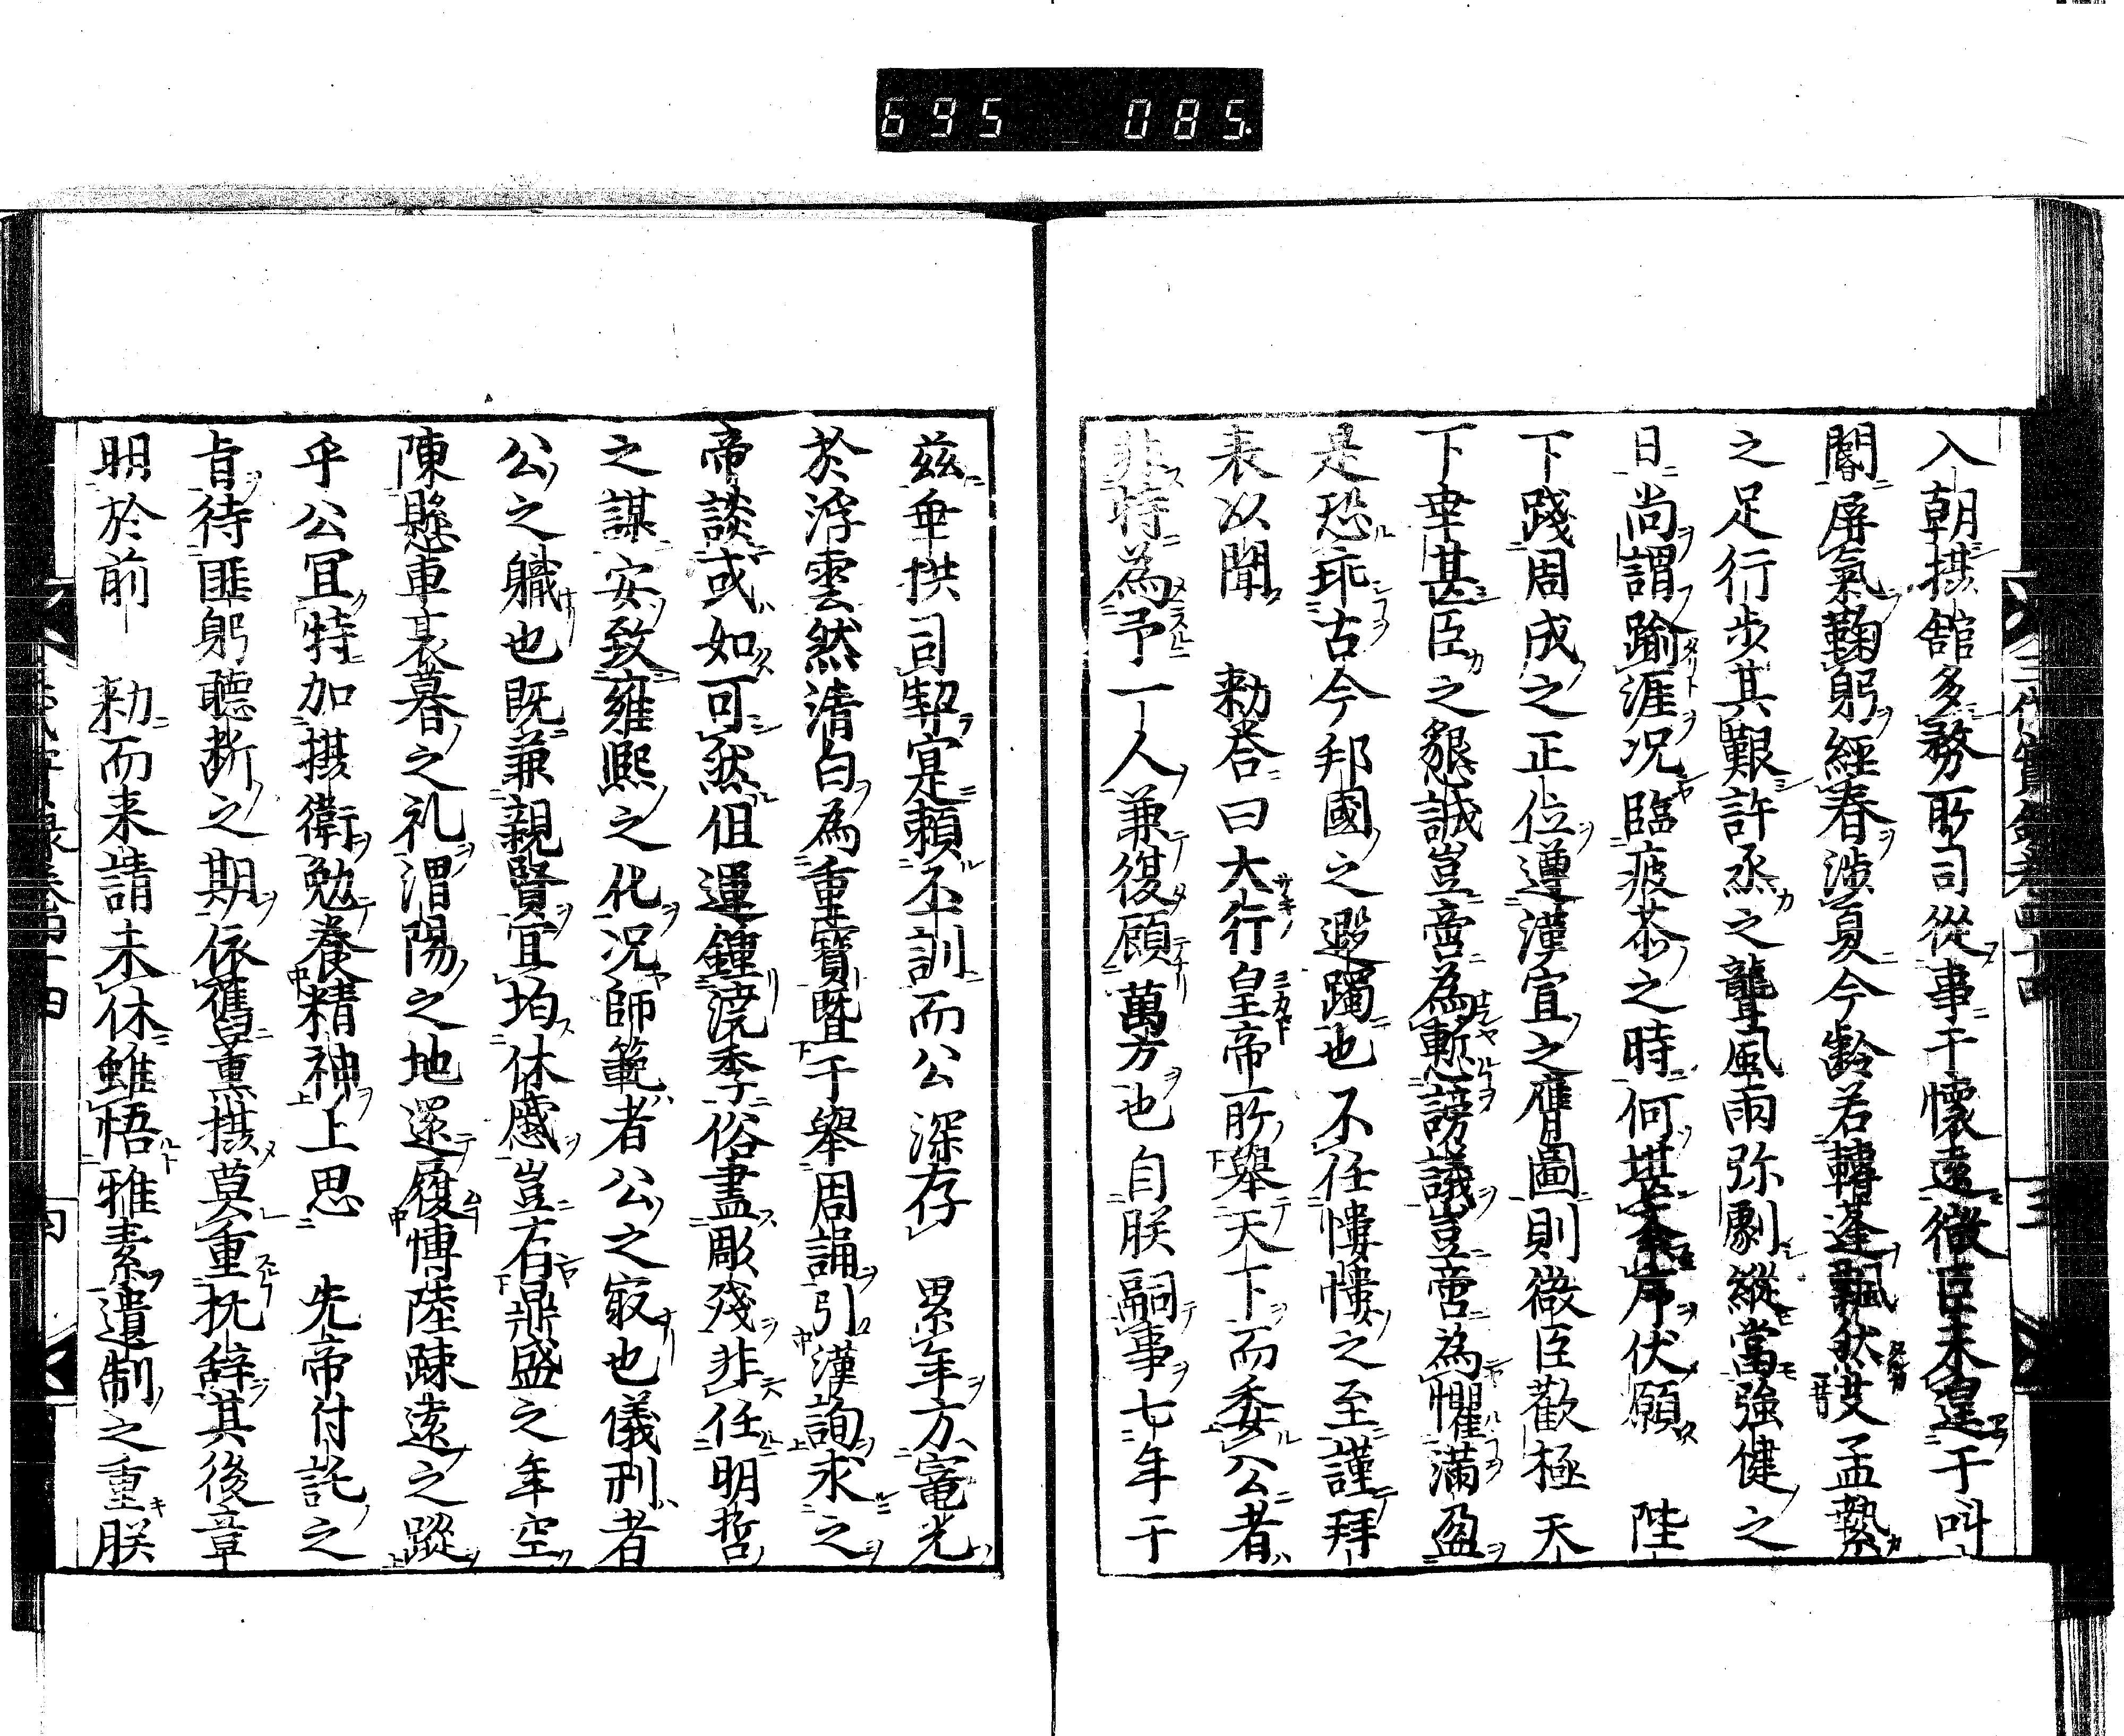 695 085.
入朝摂舘多務所司從事于懷遠微臣未遑于叫
閽屏氣鞠躬經春渉夏今齡若轉蓬飄然
孟縶
之足行步其艱許丞之聾風雨弥劇縱當強健之
日尚謂踰涯况臨疲苶之時何堪
序伏願　陛
下踐周成之正位遵漢宣之膺圖則微臣歡極天
下幸甚臣之懇誠豈啻為慙謗議豈啻為懼滿盈
是恐乖古今邦國之遐躅也不任悽悽之至謹拜
表以聞　　勅答曰大行皇帝所舉天下而委公者
非特為予一人兼復顧萬方也自朕嗣事七年于
茲垂拱司契寔頼丕訓而公深存　累年方竈光
於浮雲然清白為重寳曁于舉周誦引漢詢求之
帝談或如可然但運鍾澆季俗盡彫殘非任明哲
之謀安致雍熙之化况師範者公之寂也儀刑者
公之職也既兼親賢宜均休慼豈右鼎盛之年空
陳懸車衰暮之礼渭陽之地還履博陸踈遠之蹤
乎公冝特加摂衛勉養精神上思　先帝付託之
旨待匪躬聽断之期依舊薫摂莫重抗辞其後章
明於前　勅而来請未休雖悟雅素遺制之重朕